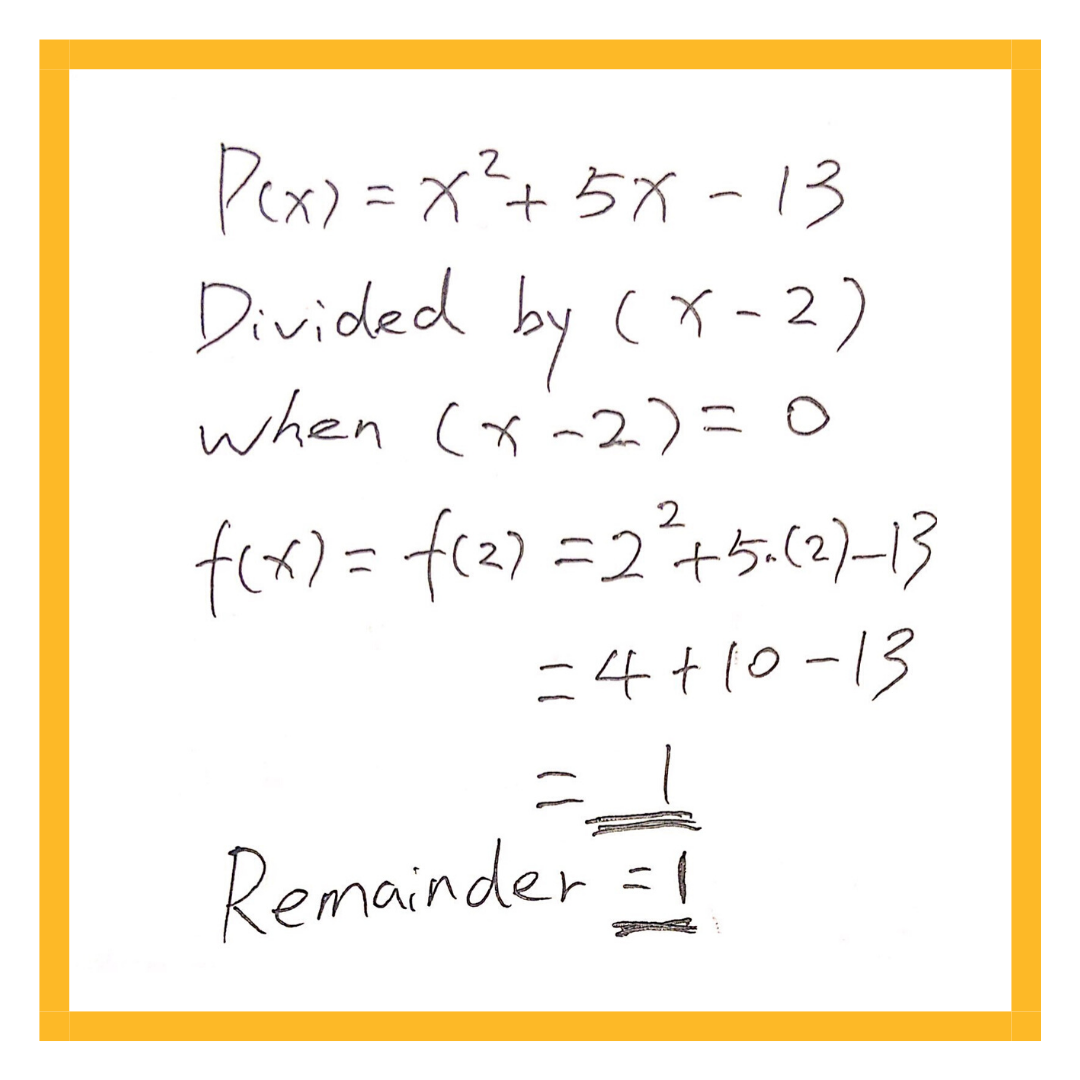 P(x) = x² + 5x - 13
Divided by (x - 2)
when (x - 2) = 0
f(x) = f(2) = 2² + 5.(2) - 13
= 4 + 10 - 13
= 1
Remainder = 1